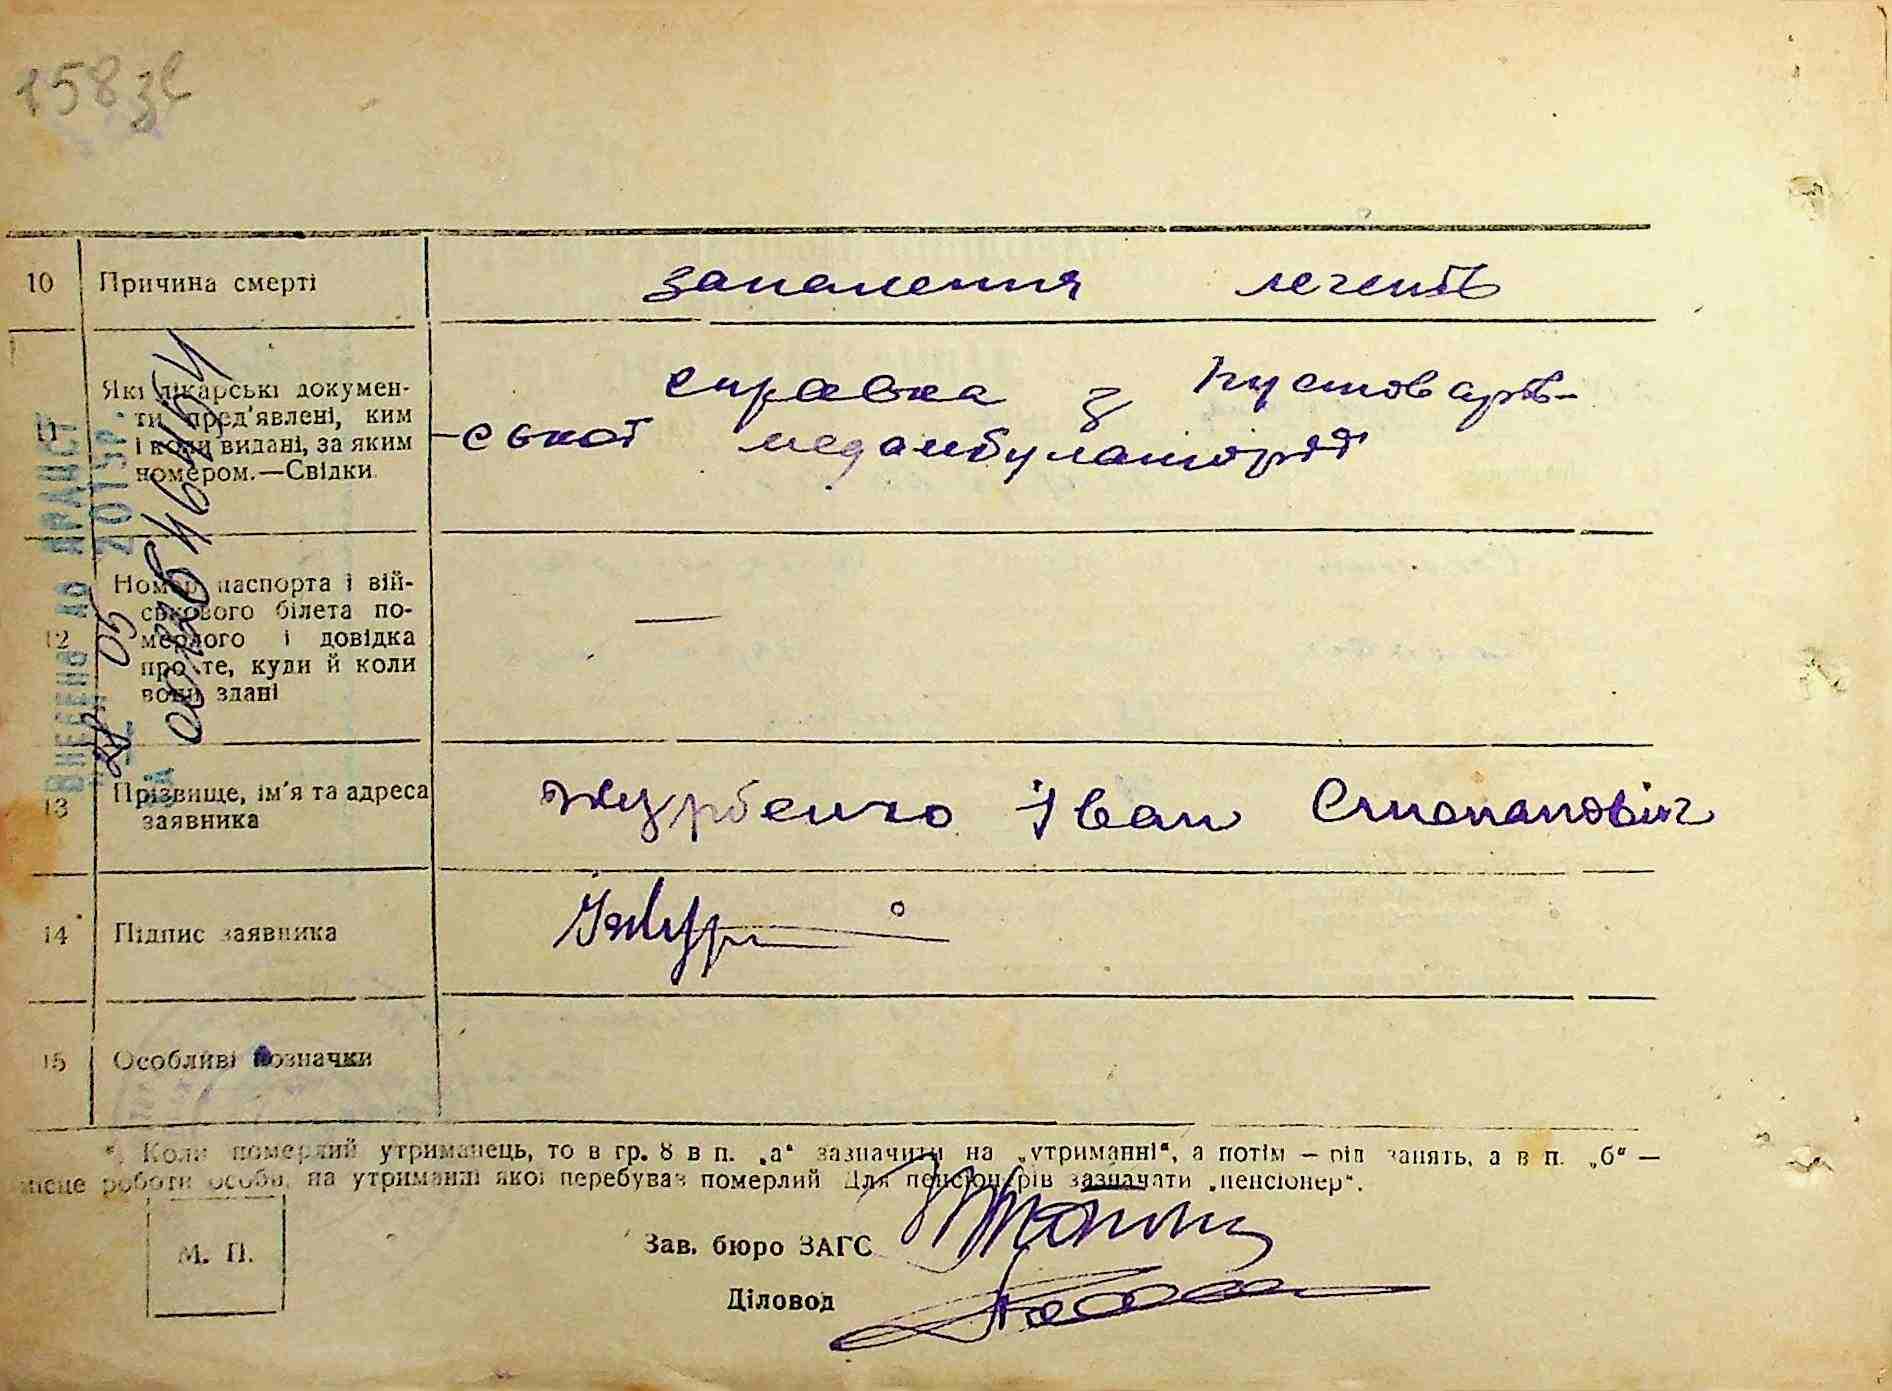 158 зв
10 Причина смерті запалення легенів
11 Які лікарські докумен-
ти пред'явлені, ким
і коли видані, за яким
номером.—Свідки.
справка з Пустоварів-
ської медамбулаторії
12 Номер паспорта і вій-
ськового білета по-
мерлого і довідка
про те, куди й коли
вони здані
—
13 Прізвище, ім'я та адреса
заявника
Журбенко Іван Степанович
14 Підпис заявника
15 Особливі позначки
ВНЕСЕНО ДО ДРАЦСГ
05 201 р.
*) Коли померлий утриманець, то в гр. 8 в п. „а“ зазначити на „утриманні“, а потім — рід занять, а в п. „б“ —
місце роботи особи, на утриманні якої перебував померлий Для пенсіонерів зазначати „пенсіонер“.
М. П.
Зав. бюро ЗАГС
Діловод